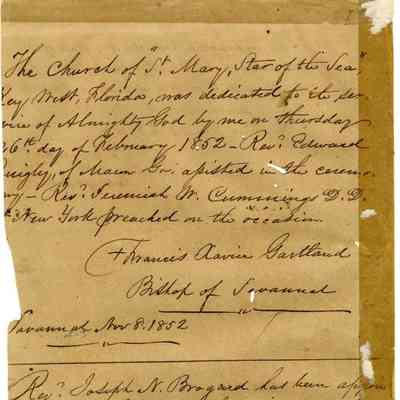 The Church of "St. Mary, Star of the Sea",
Key West, Florida, was dedicated to the ser-
vice of Almighty God by me on Thursday
26th. day of February 1852 - Revd. Edward
Quigly, of Macon Ga. assisted in the ceremo-
ny - Revd. Jeremiah W. Cummings D.D.
of New York preached on the occasion.
+Francis Xavier Gartland
Bishop of Savannah
Savannah Nov 8. 1852
Revd. Joseph N. Brogard has been appoin